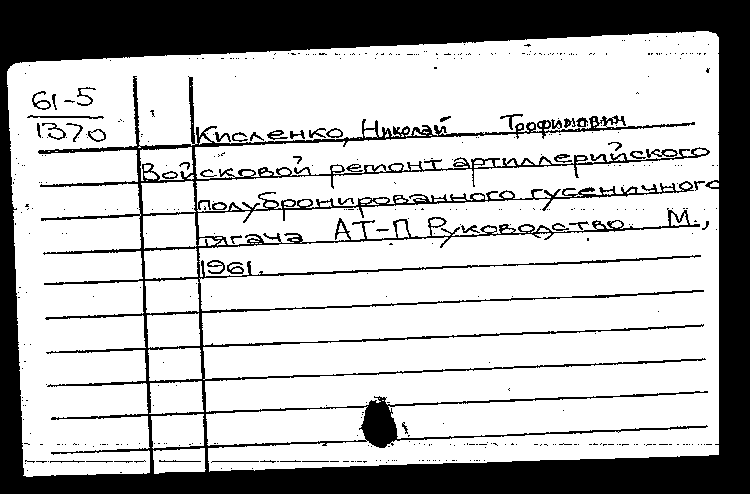 61-5
1370
Кисленко, Николай Трофимович
Войсковой ремонт артиллерийского
полубронированного гусеничного
тягача АТ-П. Руководство. М.,
1961.